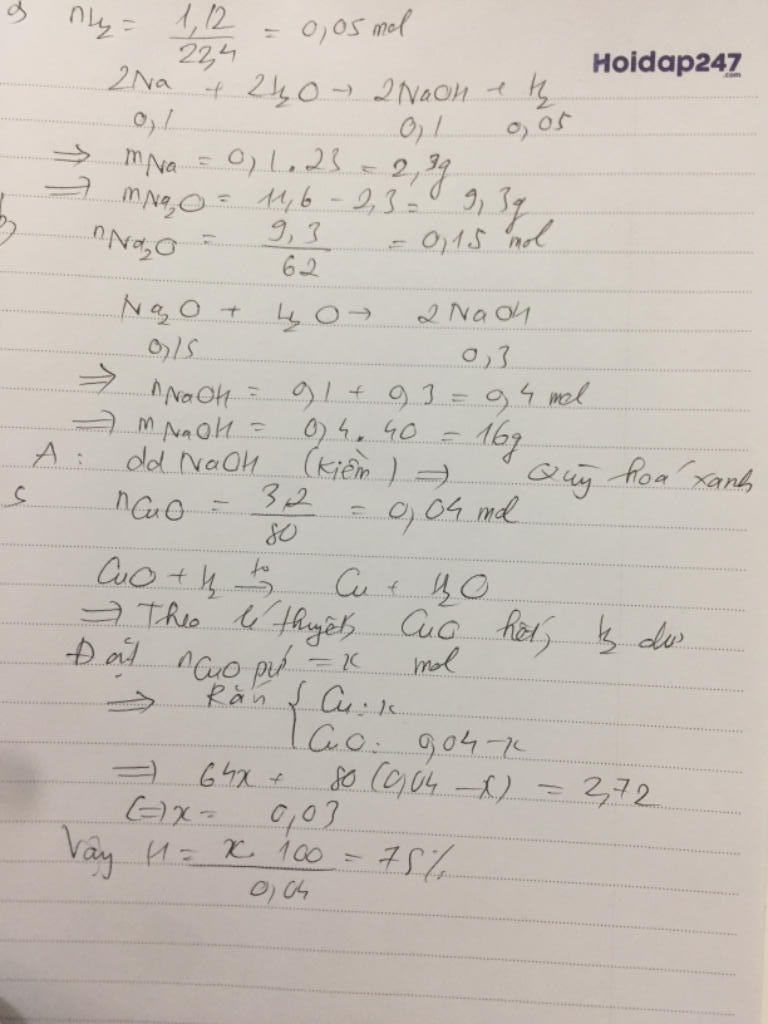 a) nH₂ = 1,12 / 22,4 = 0,05 mol
Hoidap247
.com
2Na + 2H₂O → 2NaOH + H₂
0,1 0,1 0,05
=> mNa = 0,1.23 = 2,3g
=> mNa₂O = 11,6 - 2,3 = 9,3g
b) nNa₂O = 9,3 / 62 = 0,15 mol
Na₂O + H₂O → 2NaOH
0,15 0,3
=> nNaOH = 0,1 + 0,3 = 0,4 mol
=> mNaOH = 0,4.40 = 16g
A: dd NaOH (Kiềm) => Quỳ hoá xanh
c nCuO = 3,2 / 80 = 0,04 mol
CuO + H₂ t° → Cu + H₂O
=> Theo lí thuyết, CuO hết, H₂ dư
Đặt nCuO pứ = x mol
=> Rắn { Cu: x
CuO: 0,04-x
=> 64x + 80(0,04-x) = 2,72
(=) x = 0,03
Vậy H = x.100 / 0,04 = 75%